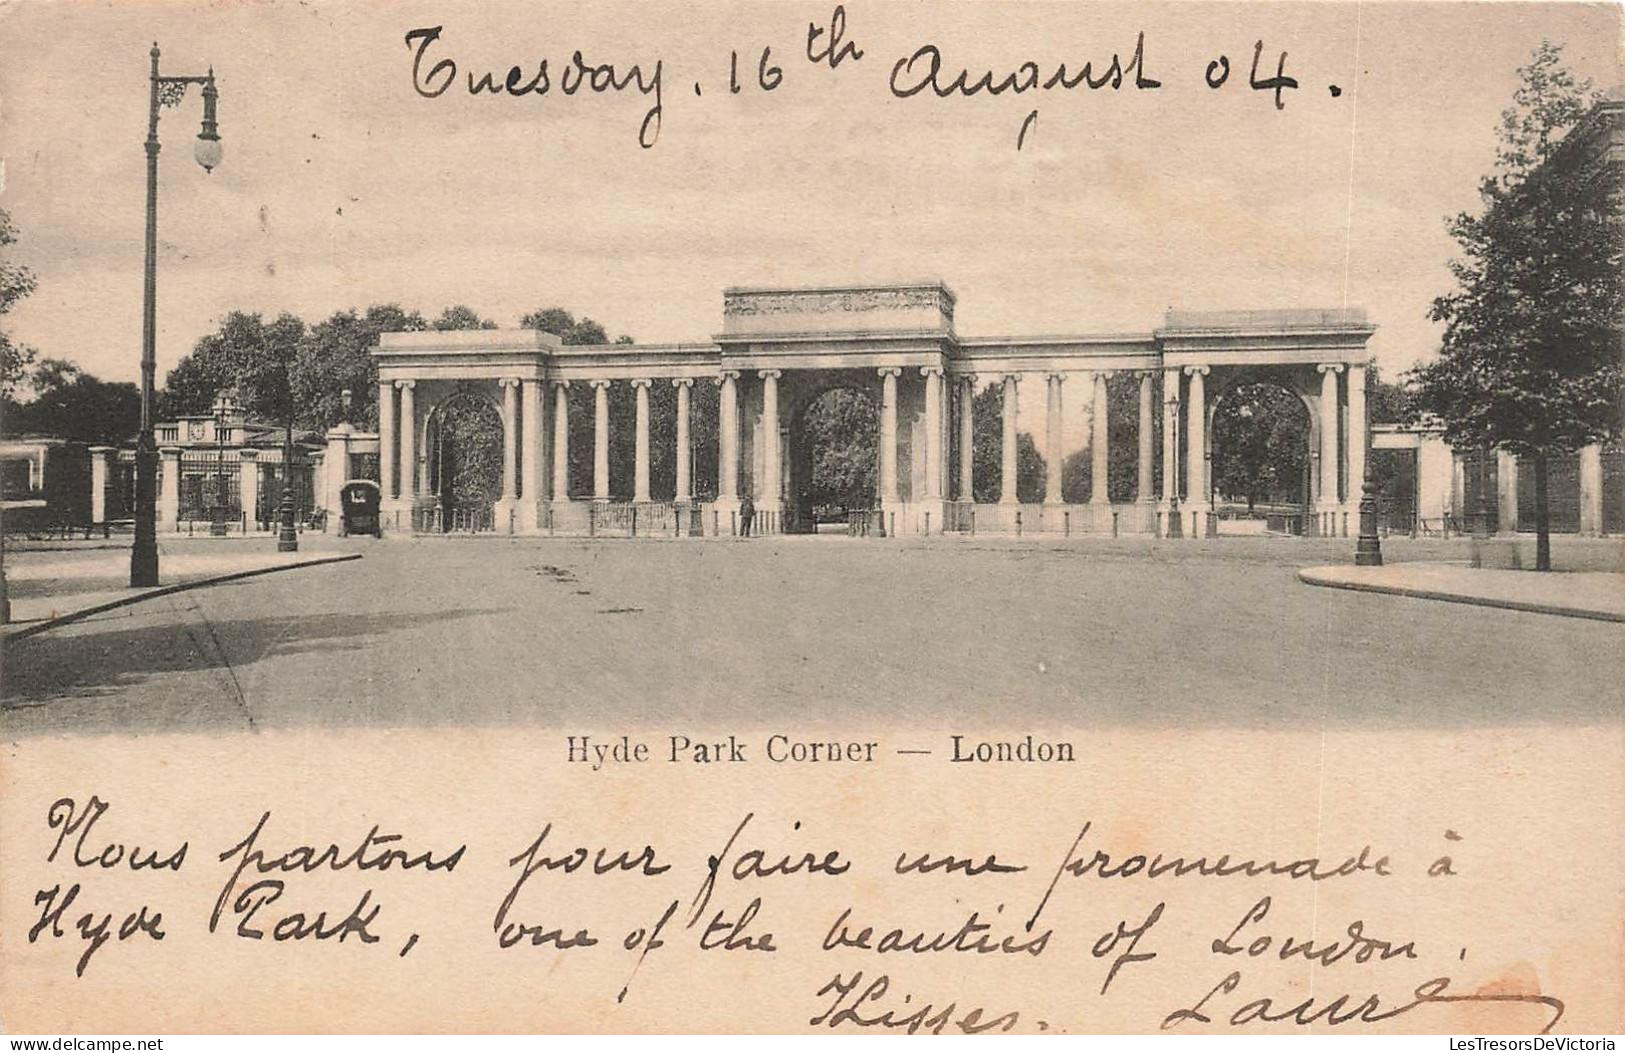 Tuesday. 16th August 04.
Hyde Park Corner — London
Nous partons pour faire une promenade à
Hyde Park, one of the beauties of London.
Kisses. Laure
© LesTresorsDeVictoria
LesTresorsDeVictoria